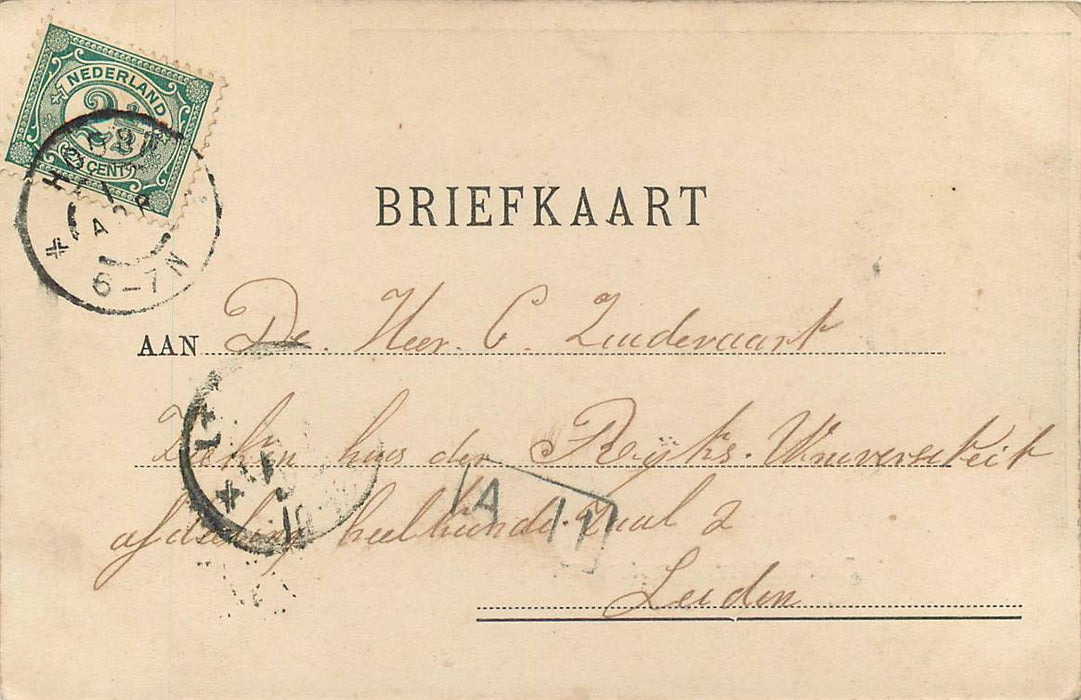 NEDERLAND
2½
CENT
6-7N
BRIEFKAART
AAN De. Heer. C. Zuidevaart
Zieken huis der Rijks. Universiteit
afdeling heelkunde. Zaal 2
Leiden